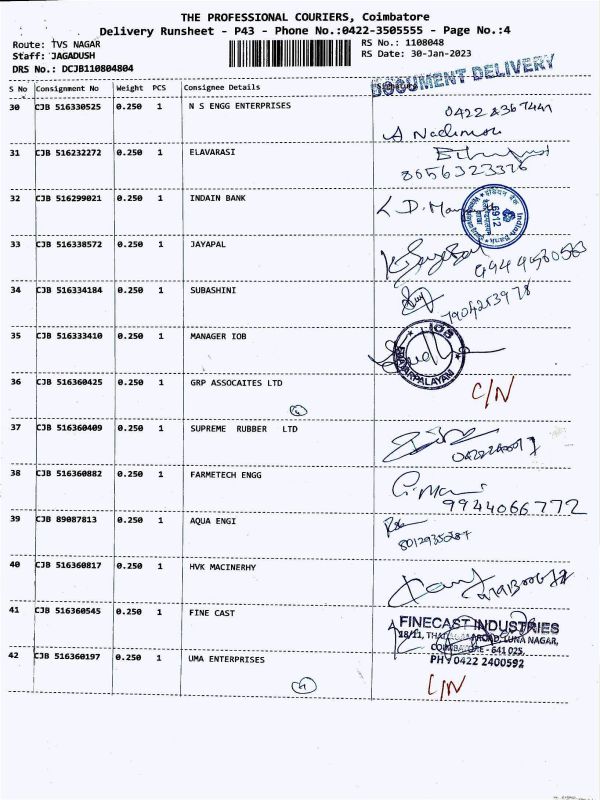 THE PROFESSIONAL COURIERS, Coimbatore
Delivery Runsheet - P43 - Phone No.:0422-3505555 - Page No.:4
Route: TVS NAGAR
RS No.: 1108048
Staff: JAGADUSH
RS Date: 30-Jan-2023
DRS No.: DCJB110804804
DOCUMENT DELIVERY
S No Consignment No Weight PCS Consignee Details
30 CJB 516330525 0.250 1 N S ENGG ENTERPRISES
31 CJB 516232272 0.250 1 ELAVARASI
8056323326
32 CJB 516299021 0.250 1 INDAIN BANK
Indian Bank
6912
33 CJB 516338572 0.250 1 JAYAPAL
34 CJB 516334184 0.250 1 SUBASHINI
7904253978
35 CJB 516333410 0.250 1 MANAGER IOB
IOB
36 CJB 516360425 0.250 1 GRP ASSOCAITES LTD
C/N
4
37 CJB 516360409 0.250 1 SUPREME RUBBER LTD
38 CJB 516360882 0.250 1 FARMETECH ENGG
G. Mani
9944066772
39 CJB 89087813 0.250 1 AQUA ENGI
40 CJB 516360817 0.250 1 HVK MACINERHY
41 CJB 516360545 0.250 1 FINE CAST
FINECAST INDUSTRIES
18/11, ROAD, LUNA NAGAR,
COIMBATORE - 641 025.
PH 0422 2400592
42 CJB 516360197 0.250 1 UMA ENTERPRISES
C/N
4